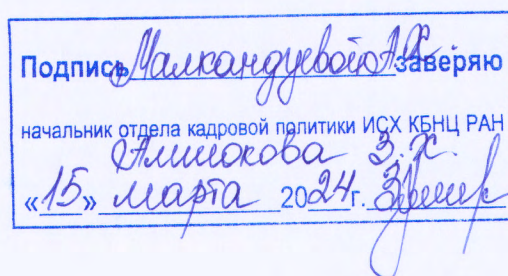 Подпись Малкандуевой А.Х. заверяю
начальник отдела кадровой политики ИСХ КБНЦ РАН
Амшокова З.Х.
«15» марта 2024г.